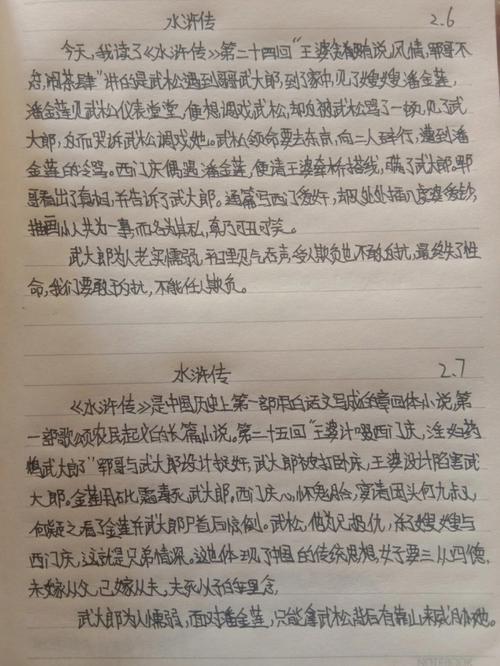 水浒传 2.6
今天,我读了《水浒传》第二十四回"王婆贪贿说风情,郓哥不
忿闹茶肆"讲的是武松遇到哥哥武大郎,到了家中,见了嫂嫂潘金莲,
潘金莲见武松仪表堂堂,便想调戏武松,却被武松骂了一顿,见了武
大郎,反而哭诉武松调戏她。武松领命要去东京,向二人辞行,遭到潘
金莲的冷骂。西门庆偶遇潘金莲,便请王婆牵桥搭线,瞒了武大郎。郓
哥看出了真相,并告诉了武大郎。通篇写西门爱奸,却处处插入虔婆爱钞,
描画小人共为一事,而各为其私,真乃可丑可笑。
武大郎为人老实懦弱,平日里忍气吞声,受人欺负也不敢反抗,最终失了性
命,我们要敢于反抗,不能任人欺负。
水浒传 2.7
《水浒传》是中国历史上第一部用白话文写成的章回体小说,第
一部歌颂农民起义的长篇小说。第二十五回"王婆计啜西门庆,淫妇药
鸩武大郎"郓哥与武大郎设计捉奸,武大郎被打卧床,王婆设计陷害武
大郎。金莲用砒霜毒死武大郎。西门庆心怀鬼胎,宴请团头何九叔,
何疑之看了金莲并武大郎尸首后惊倒。武松,他为兄报仇,杀了嫂嫂与
西门庆,这就是兄弟情深。这也体现了中国的传统思想,女子要三从四德,
未嫁从父,已嫁从夫,夫死从子的
念。
武大郎为人懦弱,面对潘金莲,只能拿武松背后有靠山来威胁她。
NOTEBOOK